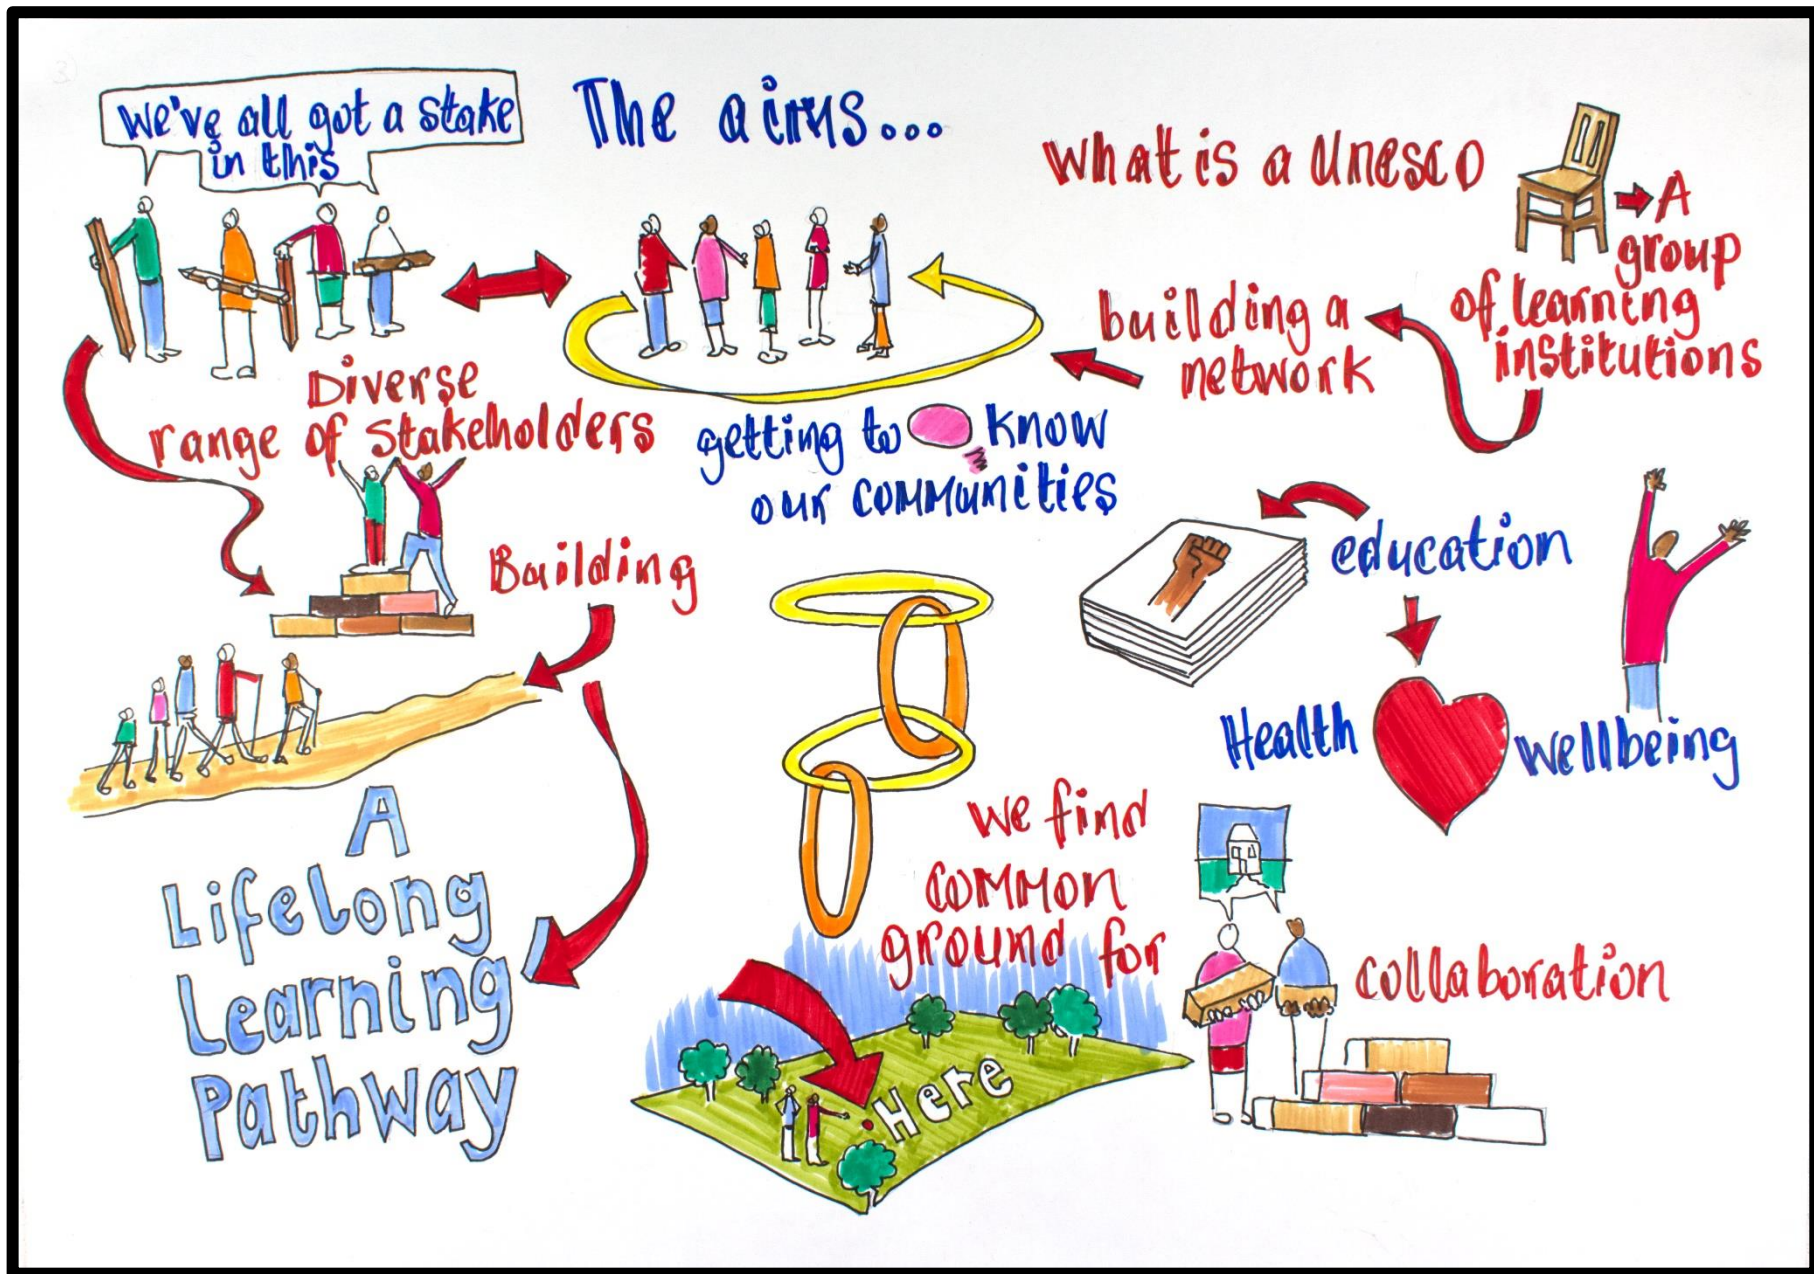 We've all got a stake
in this
The aims...
What is a Unesco
A
group
of learning
institutions
building a
network
Diverse
range of stakeholders
getting to know
our communities
Building
education
Health
wellbeing
A
Lifelong
Learning
Pathway
we find
common
ground for
Here
collaboration